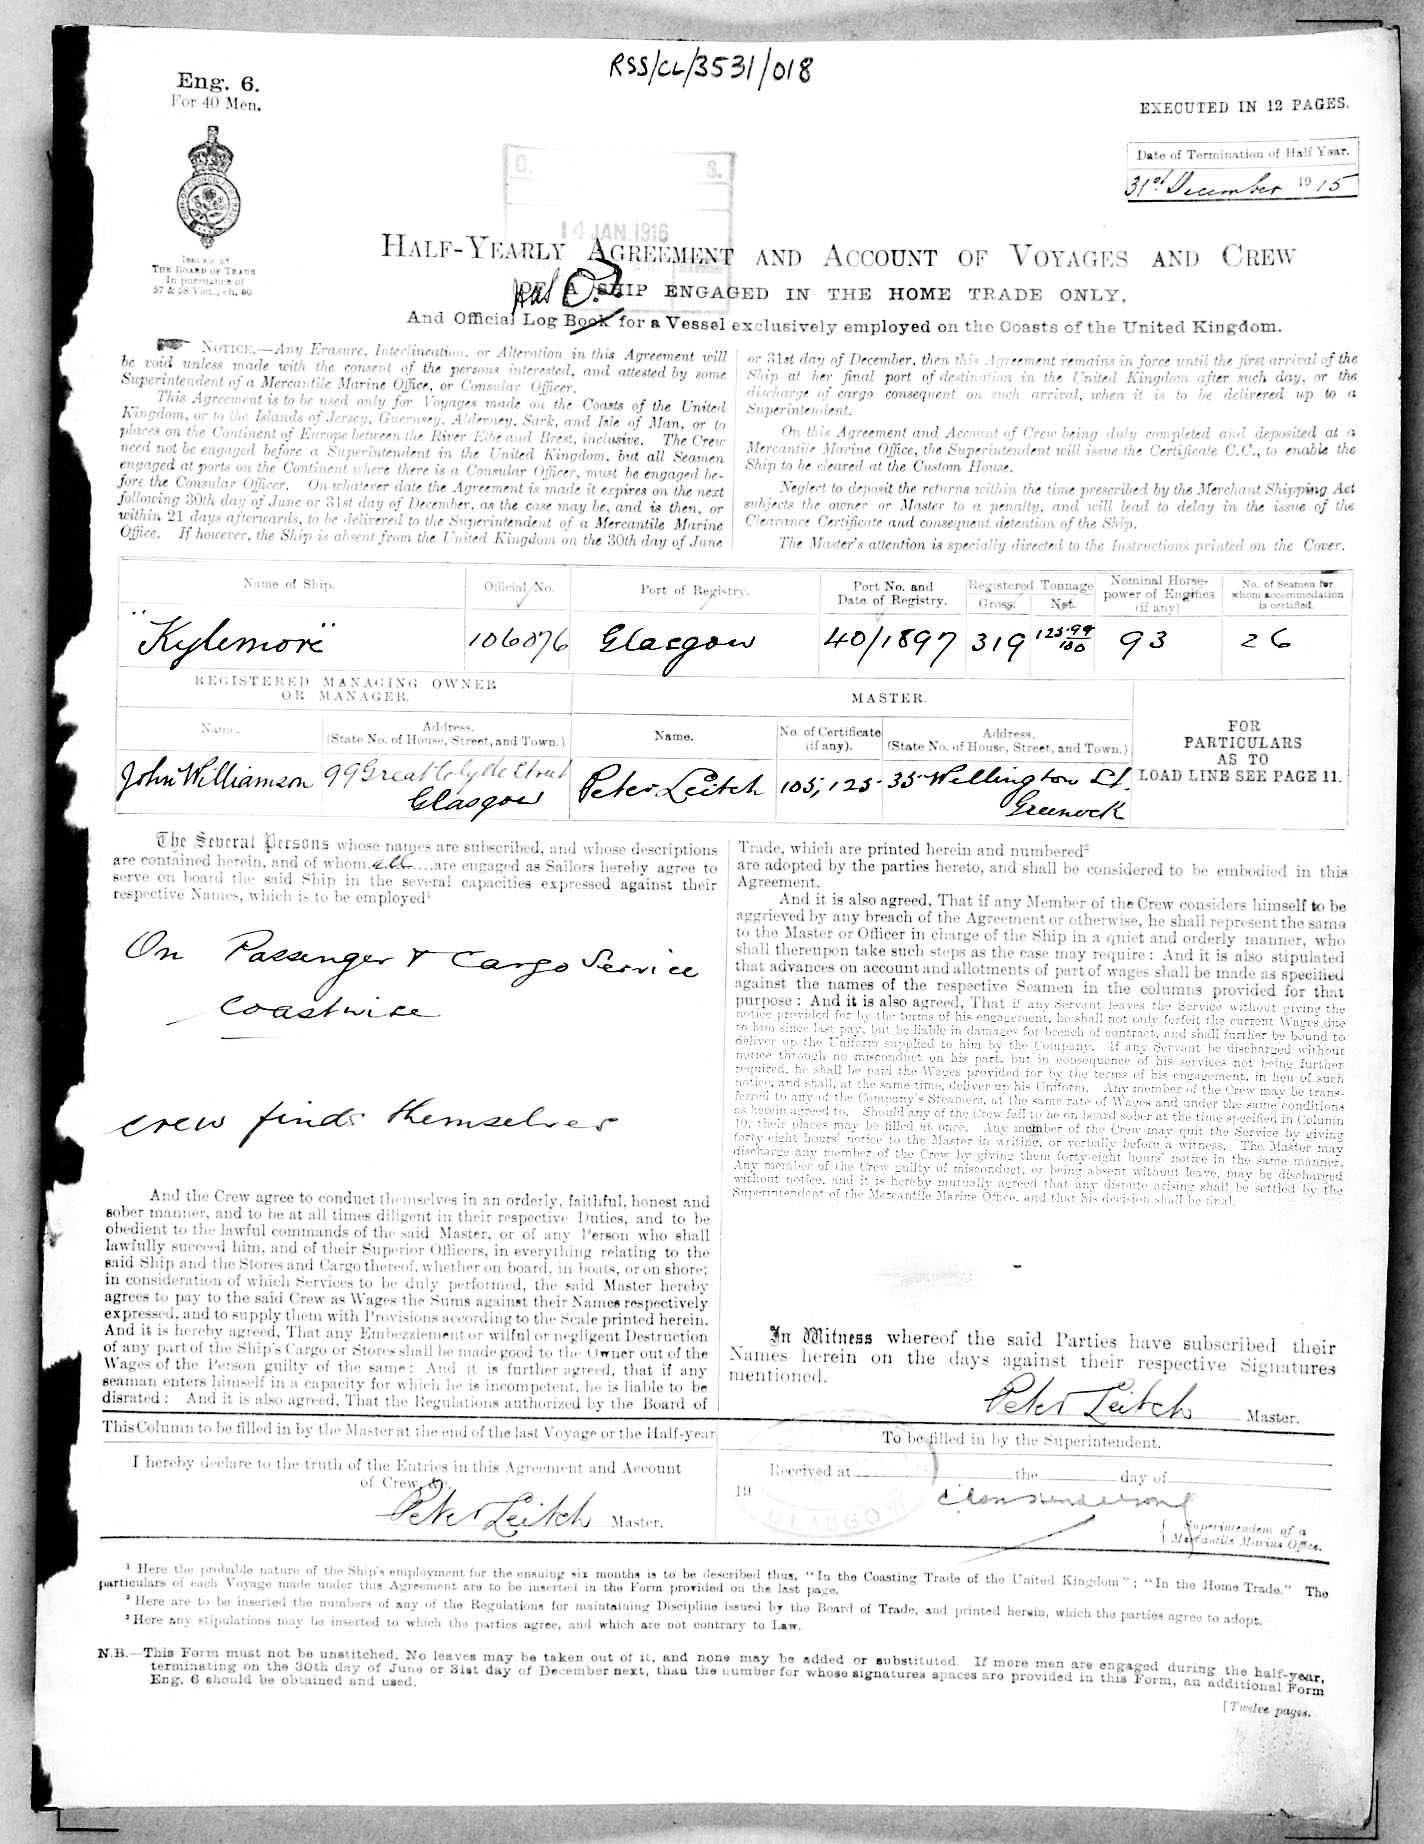 RSS/CL/3531/018
Eng. 6.
For 40 Men.
EXECUTED IN 12 PAGES.
Date of Termination of Half Year.
31st December 1915
ISSUED BY
THE BOARD OF TRADE
In pursuance of
57 & 58 Vict., ch. 60
G. S.
14 JAN. 1916
HALF-YEARLY AGREEMENT AND ACCOUNT OF VOYAGES AND CREW
OF A SHIP ENGAGED IN THE HOME TRADE ONLY,
And Official Log Book for a Vessel exclusively employed on the Coasts of the United Kingdom.
NOTICE.—Any Erasure, Interlineation, or Alteration in this Agreement will
be void unless made with the consent of the persons interested, and attested by some
Superintendent of a Mercantile Marine Office, or Consular Officer.
This Agreement is to be used only for Voyages made on the Coasts of the United
Kingdom, or to the Islands of Jersey, Guernsey, Alderney, Sark, and Isle of Man, or to
places on the Continent of Europe between the River Elbe and Brest, inclusive. The Crew
need not be engaged before a Superintendent in the United Kingdom, but all Seamen
engaged at ports on the Continent where there is a Consular Officer, must be engaged be-
fore the Consular Officer. On whatever date the Agreement is made it expires on the next
following 30th day of June or 31st day of December, as the case may be, and is then, or
within 21 days afterwards, to be delivered to the Superintendent of a Mercantile Marine
Office. If however, the Ship is absent from the United Kingdom on the 30th day of June
or 31st day of December, then this Agreement remains in force until the first arrival of the
Ship at her final port of destination in the United Kingdom after such day, or the
discharge of cargo consequent on such arrival, when it is to be delivered up to a
Superintendent.
On this Agreement and Account of Crew being duly completed and deposited at a
Mercantile Marine Office, the Superintendent will issue the Certificate C.C., to enable the
Ship to be cleared at the Custom House.
Neglect to deposit the returns within the time prescribed by the Merchant Shipping Act
subjects the owner or Master to a penalty, and will lead to delay in the issue of the
Clearance Certificate and consequent detention of the Ship.
The Master's attention is specially directed to the Instructions printed on the Cover.
Name of Ship. Official No. Port of Registry. Port No. and Date of Registry. Registered Tonnage Gross. Net. Nominal Horse-power of Engines (if any) No. of Seamen for whom accommodation is certified.
"Kylemore" 106076 Glasgow 40/1897 319 125 99/100 93 26
REGISTERED MANAGING OWNER
OR MANAGER.
MASTER.
Name. Address. (State No. of House, Street, and Town.) Name. No. of Certificate (if any). Address. (State No. of House, Street, and Town.)
FOR
PARTICULARS
AS TO
LOAD LINE SEE PAGE 11.
John Williamson 99 Great Clyde Street Peter Leitch 105,125 35 Wellington St.
Glasgow Greenock
The Several Persons whose names are subscribed, and whose descriptions
are contained herein, and of whom all are engaged as Sailors hereby agree to
serve on board the said Ship in the several capacities expressed against their
respective Names, which is to be employed¹
On Passenger & Cargo Service
Coastwise
Crew finds themselves
And the Crew agree to conduct themselves in an orderly, faithful, honest and
sober manner, and to be at all times diligent in their respective Duties, and to be
obedient to the lawful commands of the said Master, or of any Person who shall
lawfully succeed him, and of their Superior Officers, in everything relating to the
said Ship and the Stores and Cargo thereof, whether on board, in boats, or on shore;
in consideration of which Services to be duly performed, the said Master hereby
agrees to pay to the said Crew as Wages the Sums against their Names respectively
expressed, and to supply them with Provisions according to the Scale printed herein.
And it is hereby agreed, That any Embezzlement or wilful or negligent Destruction
of any part of the Ship's Cargo or Stores shall be made good to the Owner out of the
Wages of the Person guilty of the same: And it is further agreed, that if any
seaman enters himself in a capacity for which he is incompetent, he is liable to be
disrated: And it is also agreed, That the Regulations authorized by the Board of
Trade, which are printed herein and numbered²
are adopted by the parties hereto, and shall be considered to be embodied in this
Agreement.
And it is also agreed, That if any Member of the Crew considers himself to be
aggrieved by any breach of the Agreement or otherwise, he shall represent the same
to the Master or Officer in charge of the Ship in a quiet and orderly manner, who
shall thereupon take such steps as the case may require: And it is also stipulated
that advances on account and allotments of part of wages shall be made as specified
against the names of the respective Seamen in the columns provided for that
purpose: And it is also agreed, That if any Servant leaves the Service without giving the
notice provided for by the terms of his engagement, he shall not only forfeit the current Wages due
to him since last pay, but be liable in damages for breach of contract, and shall further be bound to
deliver up the Uniform supplied to him by the Company. If any Servant be discharged without
notice through no misconduct on his part, but in consequence of his services not being further
required, he shall be paid the Wages provided for by the terms of his engagement, in lieu of such
notice, and shall, at the same time, deliver up his Uniform. Any member of the Crew may be trans-
ferred to any of the Company's Steamers, at the same rate of Wages and under the same conditions
as herein agreed to. Should any of the Crew fail to be on board sober at the time specified in Column
10, their places may be filled at once. Any member of the Crew may quit the Service by giving
forty-eight hours' notice to the Master in writing, or verbally before a witness. The Master may
discharge any member of the Crew by giving them forty-eight hours' notice in the same manner.
Any member of the Crew guilty of misconduct, or being absent without leave, may be discharged
without notice, and it is hereby mutually agreed that any dispute arising shall be settled by the
Superintendent of the Mercantile Marine Office, and that his decision shall be final.
In Witness whereof the said Parties have subscribed their
Names herein on the days against their respective Signatures
mentioned.
Peter Leitch Master.
This Column to be filled in by the Master at the end of the last Voyage or the Half-year
I hereby declare to the truth of the Entries in this Agreement and Account
of Crew, &c.
Peter Leitch Master.
To be filled in by the Superintendent.
Received at the day of
19
GLASGOW
Superintendent of a
Mercantile Marine Office.
¹ Here the probable nature of the Ship's employment for the ensuing six months is to be described thus, "In the Coasting Trade of the United Kingdom"; "In the Home Trade." The
particulars of each Voyage made under this Agreement are to be inserted in the Form provided on the last page.
² Here are to be inserted the numbers of any of the Regulations for maintaining Discipline issued by the Board of Trade, and printed herein, which the parties agree to adopt.
³ Here any stipulations may be inserted to which the parties agree, and which are not contrary to Law.
N.B.—This Form must not be unstitched. No leaves may be taken out of it, and none may be added or substituted. If more men are engaged during the half-year,
terminating on the 30th day of June or 31st day of December next, than the number for whose signatures spaces are provided in this Form, an additional Form
Eng. 6 should be obtained and used.
[Twelve pages.